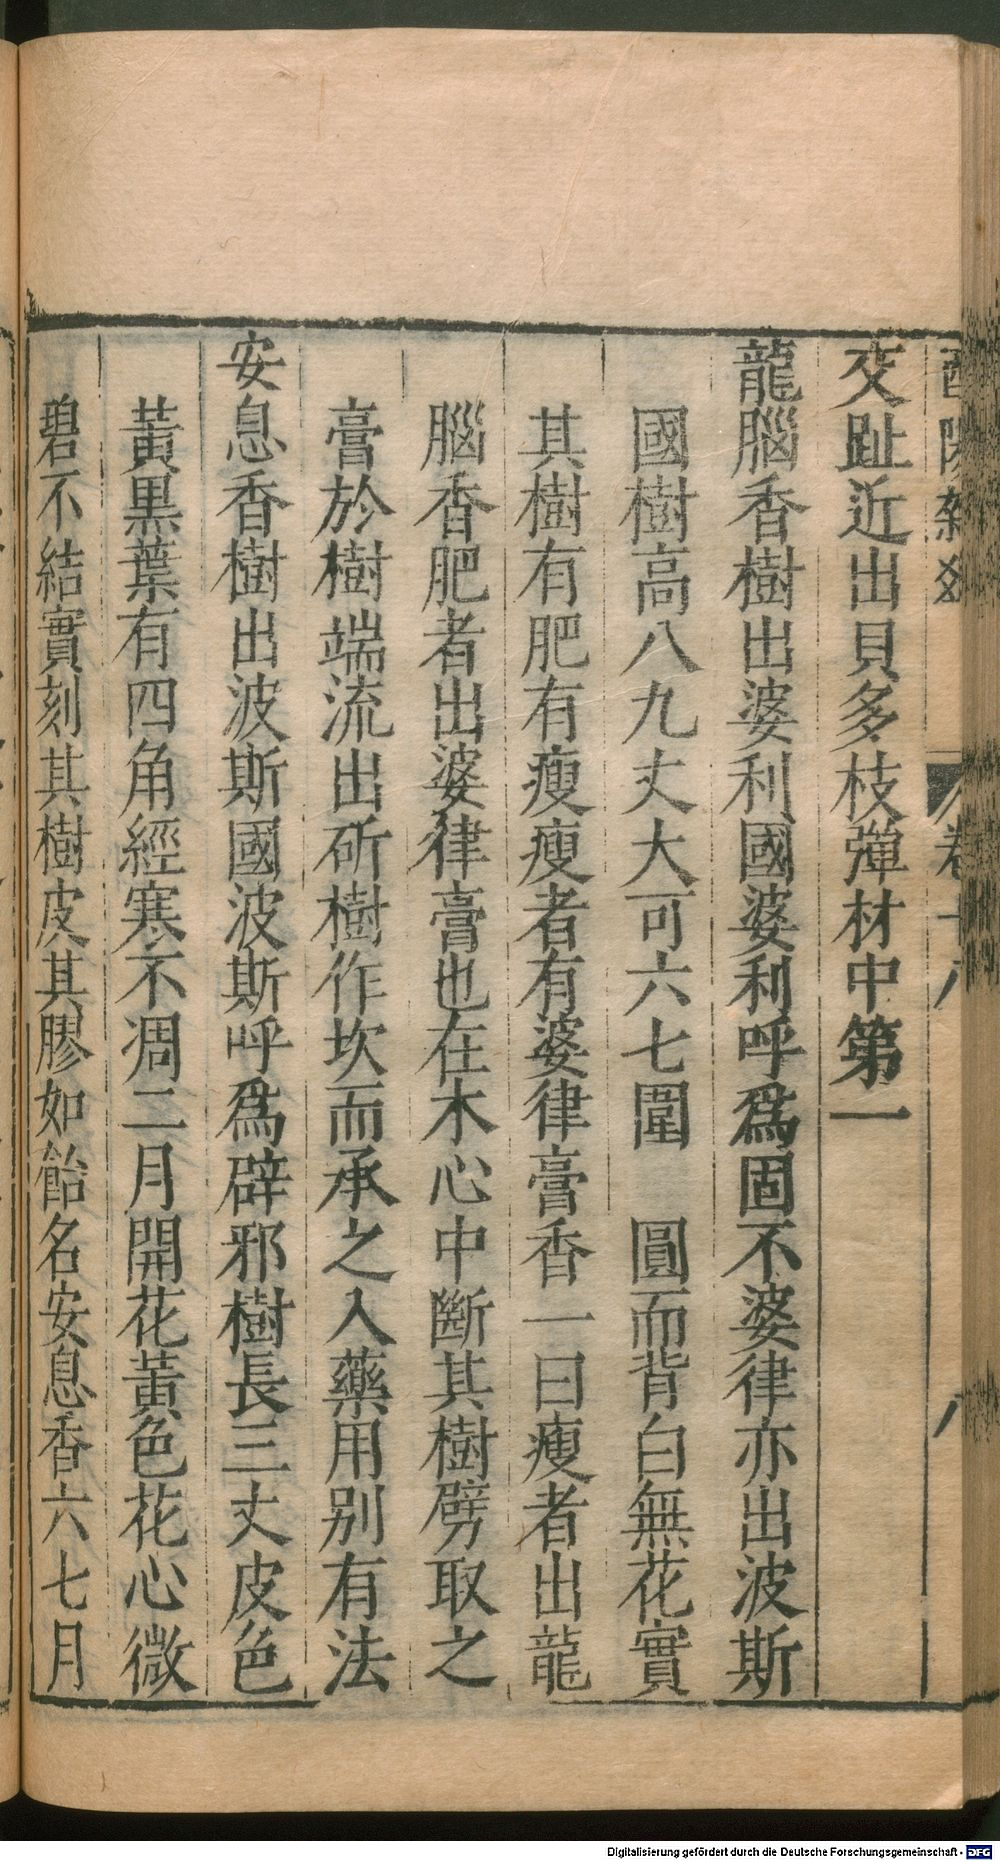 酉陽雜俎 卷十八 八
交趾近出貝多枝彈材中第一
龍腦香樹出婆利國婆利呼爲固不婆律亦出波斯
國樹高八九丈大可六七圍 圓而背白無花實
其樹有肥有瘦瘦者有婆律膏香一曰瘦者出龍
腦香肥者出婆律膏也在木心中斷其樹劈取之
膏於樹端流出斫樹作坎而承之入藥用别有法
安息香樹出波斯國波斯呼爲辟邪樹長三丈皮色
黃黒葉有四角經寒不凋二月開花黃色花心微
碧不結實刻其樹皮其膠如飴名安息香六七月
Digitalisierung gefördert durch die Deutsche Forschungsgemeinschaft - DFG